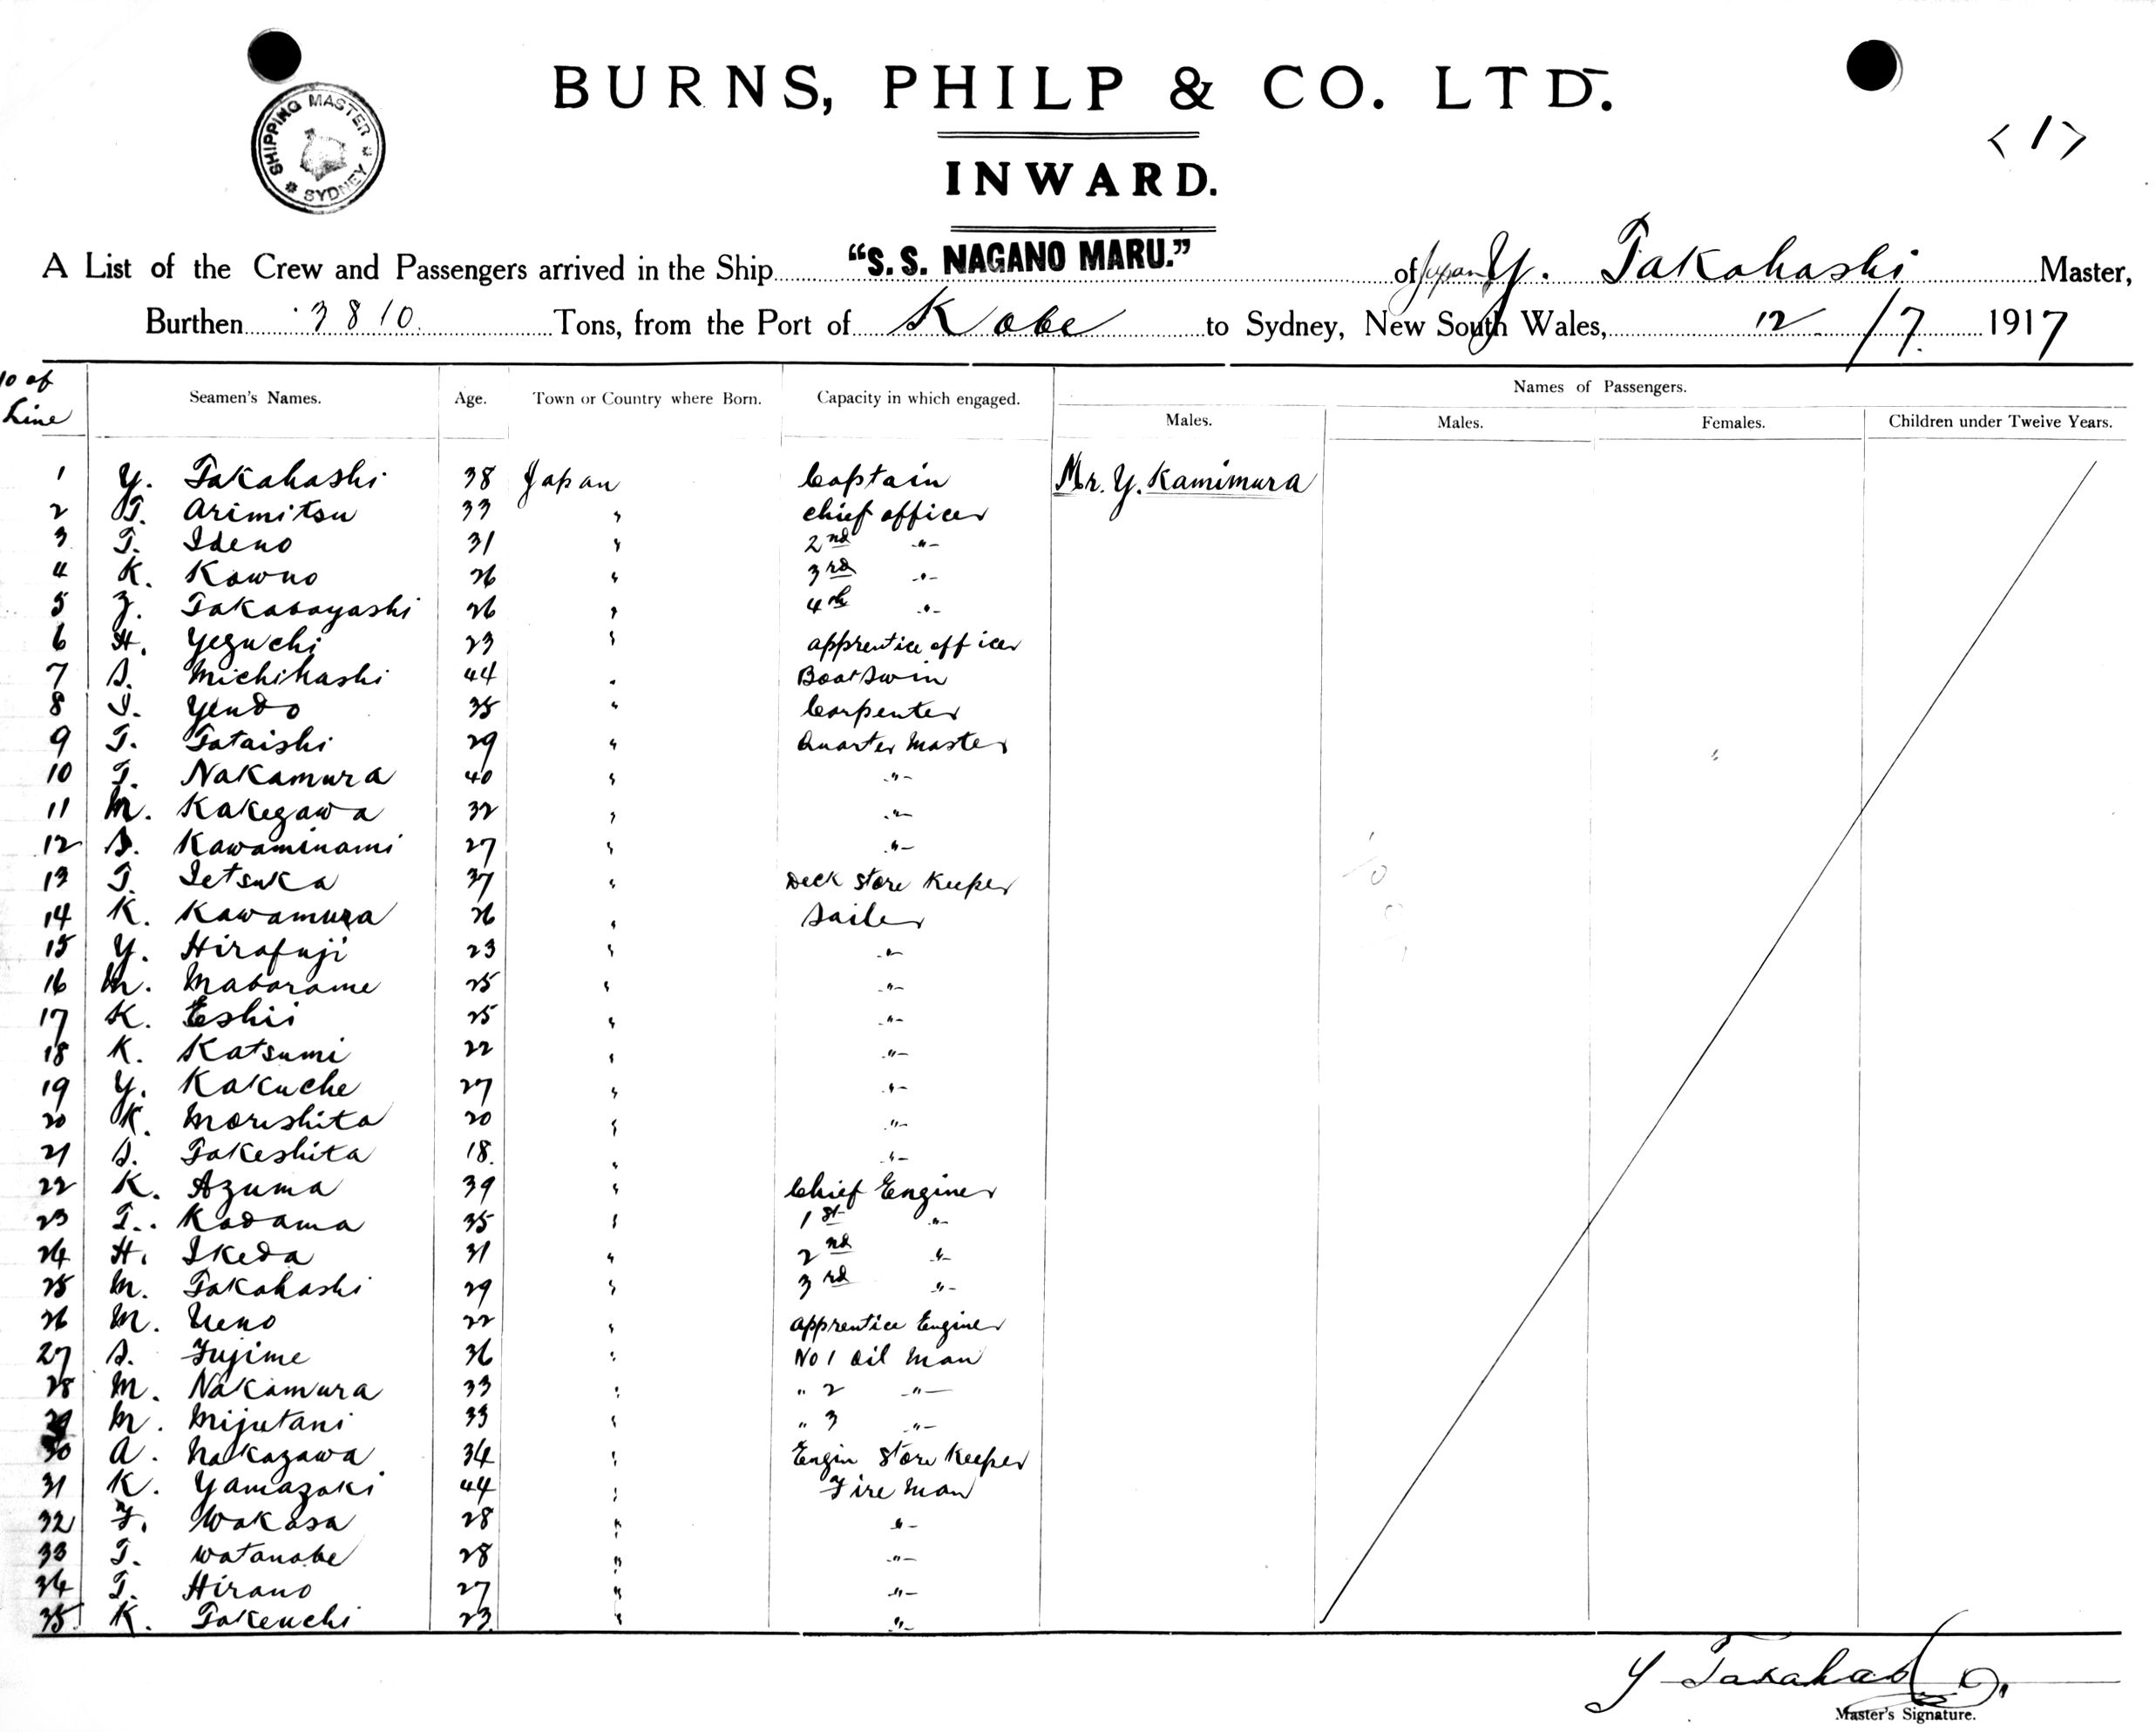 BURNS, PHILP & CO. LTD.
SHIPPING MASTER SYDNEY
<1>
INWARD.
A List of the Crew and Passengers arrived in the Ship "S. S. NAGANO MARU." of Japan Y. Takahashi Master,
Burthen 3810 Tons, from the Port of Kobe to Sydney, New South Wales, 12/7 1917
No of Line Seamen's Names. Age. Town or Country where Born. Capacity in which engaged. Names of Passengers.
Males. Males. Females. Children under Twelve Years.
1 Y. Takahashi 38 Japan Captain Mr. Y. Kamimura
2 T. Arimitsu 33 " chief officer
3 T. Ideno 31 " 2nd -"-
4 K. Kowno 26 " 3rd -"-
5 Z. Takabayashi 26 " 4th -"-
6 H. Yeguchi 23 " apprentice officer
7 S. Michihashi 44 " Boatswin
8 I. Yendo 35 " Carpenter
9 T. Tataishi 29 " Quarter Master
10 T. Nakamura 40 " -"-
11 M. Kakegawa 32 " -"-
12 S. Kawaminami 27 " -"-
13 T. Ietsuka 37 " Deck Store Keeper
14 K. Kawamura 26 " Sailer
15 Y. Hirofuji 23 " -"-
16 M. Mabarame 25 " -"-
17 K. Eshii 25 " -"-
18 K. Katsumi 22 " -"-
19 Y. Kakuche 27 " -"-
20 K. Morishita 20 " -"-
21 S. Takeshita 18. " -"-
22 K. Azuma 39 " Chief Enginer
23 T. Kodama 35 " 1st -"-
24 H. Ikeda 31 " 2nd -"-
25 M. Takahashi 29 " 3rd -"-
26 M. Ueno 22 " apprentice Enginer
27 S. Fujime 36 " No 1 Oil Man
28 M. Nakamura 33 " " 2 -"-
29 M. Mijutani 33 " " 3 -"-
30 A. Nakazawa 34 " Engin Store Keeper
31 K. Yamazaki 44 " Fire Man
32 F. Wakasa 28 " -"-
33 T. Watanabe 28 " -"-
34 T. Hirano 27 " -"-
35 K. Takeuchi 23 " -"-
Y Takahashi
Master's Signature.